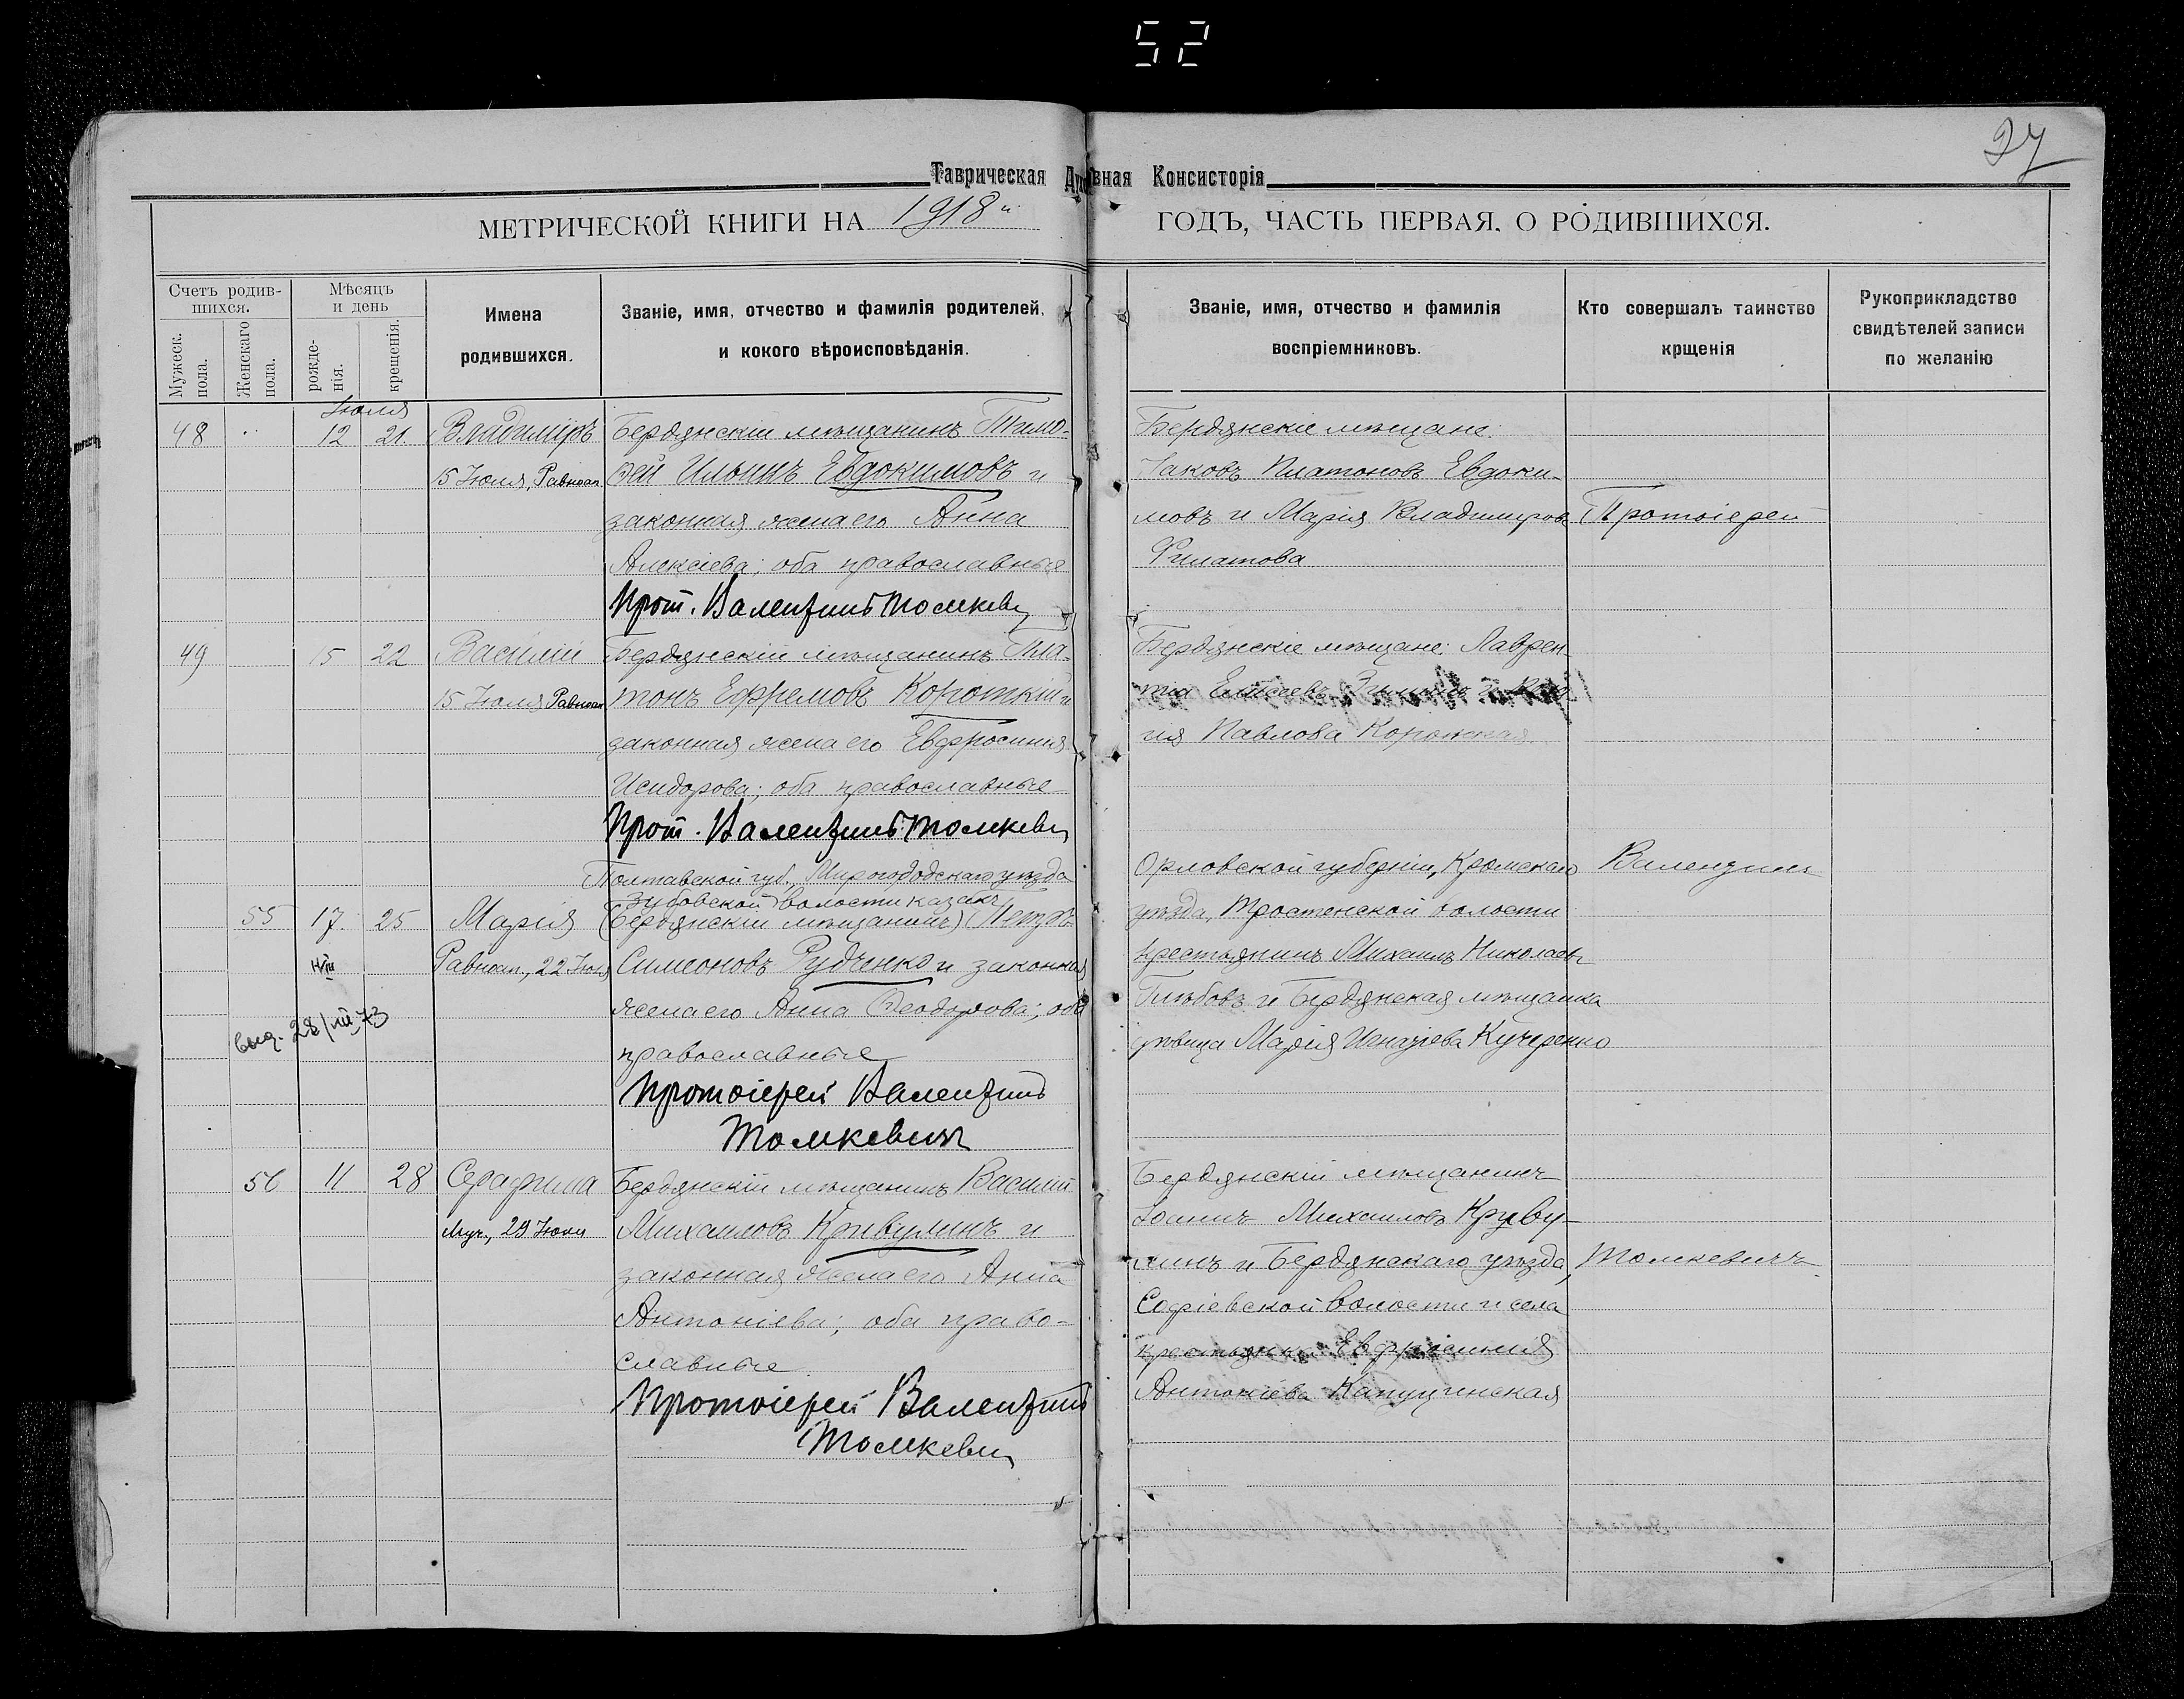 52
27
Таврическая Духовная Консисторія
МЕТРИЧЕСКОЙ КНИГИ НА 1918й ГОДЪ, ЧАСТЬ ПЕРВАЯ. О РОДИВШИХСЯ.
Счетъ родив-
шихся.
Мужеск.
пола.
Женскаго
пола.
Мѣсяцъ
и день
рожде-
нія.
крещенія.
Имена
родившихся.
Званіе, имя, отчество и фамилія родителей,
и кокого вѣроисповѣданія.
Званіе, имя, отчество и фамилія
воспріемниковъ.
Кто совершалъ таинство
крщенія
Рукоприкладство
свидѣтелей записи
по желанію
Іюля
48 12 21 Владиміръ
15 Іюля, Равноап.
Бердянскій мѣщанинъ Тимо-
ѳей Ильинъ Евдокимовъ и
законная жена его Анна
Алексіева; оба православные
Прот. Валентинъ Томкевич
Бердянскіе мѣщане:
Іаковъ Платоновъ Евдоки-
мовъ и Марія Владимиров
Филатова
Протоіерей
49 15 22 Василій
15 Іюля Равноап
Бердянскій мѣщанинъ Пла-
тонъ Ефремовъ Короткій и
законная жена его Евфросинія
Исидорова; оба православные
Прот. Валентинъ Томкевич
Бердянскіе мѣщане: Лаврен-
тій Елисеевъ
гія Павлова Короткая
Полтавской губ., Миргородскаго уѣзда
Зубовской волости казакъ
55 17 25 Марія
Равноап., 22 Іюля
выд. 28/VIII 73
(Бердянскій мѣщанинъ) Петръ
Симеоновъ Рудченко и законная
жена его Анна Ѳеодорова; оба
православные
Протоіерей Валентинъ
Томкевичъ
Орловской губерніи, Кромскаго
уѣзда, Тростенской волости
крестьянинъ Михаилъ Николаевъ
Глѣбовъ и Бердянская мѣщанка
дѣвица Марія Игнатіева Кучеренко
Валентинъ
56 11 28 Серафима
Муч., 29 Іюля
Бердянскій мѣщанинъ Василій
Михаиловъ Кривулинъ и
законная жена его Анна
Антоніева; оба право-
славные
Протоіерей Валентинъ
Томкевич
Бердянскій мѣщанинъ
Іоаннъ Михаиловъ Криву-
линъ и Бердянскаго уѣзда,
Софіевской волости и села
крестьянка Евфросинія
Антоніева Капущинская
Томкевичъ